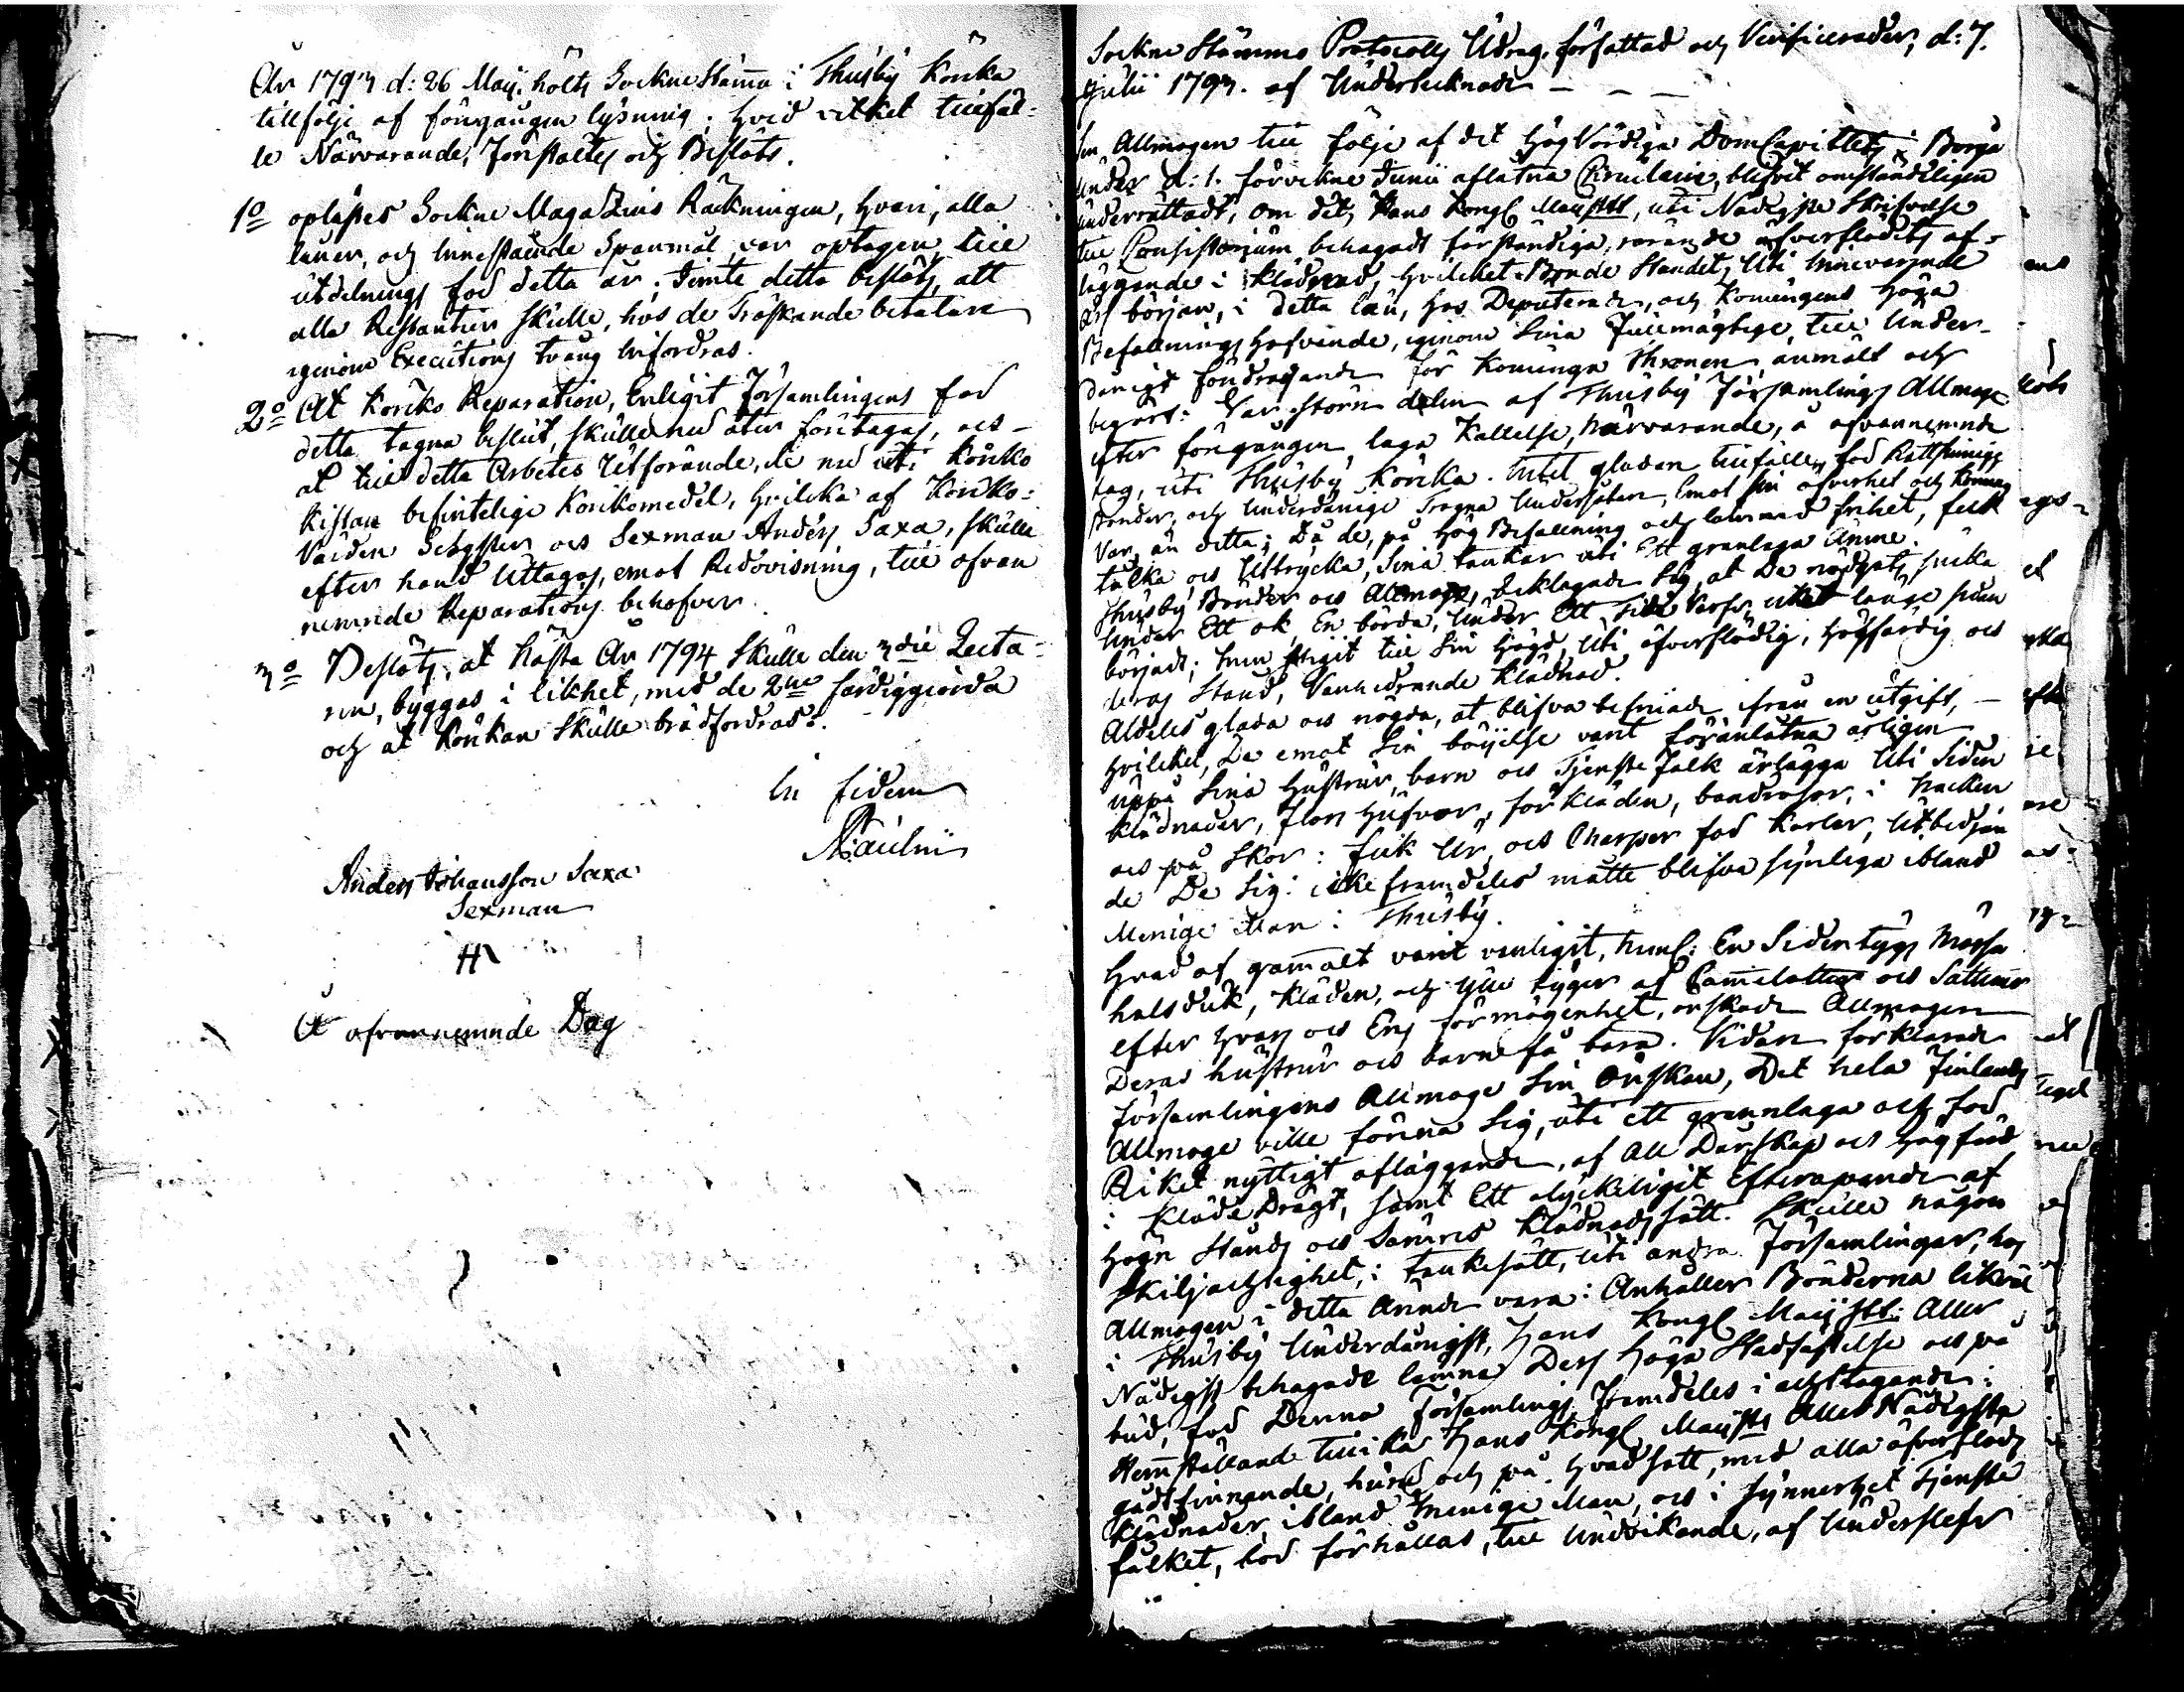 År 1793 d: 26 Maij. hölts SockneStäma i Thusby Körka
tillfölje af föregången lysning; hvid vilket tillfäl-
le Närvarande, Förstältes och Beslöts.
1o oplästes Sockne MagaZins Räckningen, hvari, alla
låner, och Innestående Spanmål var optagen, till
utdelnings för detta år: Jemte detta beslöts, att
alla Restantier skulle, hos de Tröskande betalare
igenom Executions tvång Infordras.
2o At Körko Reparation, Enligit Församlingens för
detta tagna beslut, skulle nu åter företagas, och
at till detta Arbetes Utförande, de nu uti Körko
Kistan befintelige Körkomedel, hvilcka af Körko-
Värden och Sexman Anders Saxa, skulle
efter hand Uttagas, emot Redovisning, till ofvan
nemnde Reparations behofver.
3o Beslöts, at Nästa År 1794 skulle den 3die Lecta-
ren, bygges i likhet, med de 2ne färdiggiorda
och at Körkan skulle brädfordras.
In fidem
N: Paulin
Anders Johansson Saxa
Sexman
Å ofvannemnde Dag
Sockne Stämmo Protocolls Utdrag, författad och Verificerades, d: 7.
Julii 1793. af Undertecknade - - -
Sen Allmogen till följe af det Hög Vördiga DomCapitlets i Borgå
under d: 1. förvekne Junii aflåtna Circulaire, blifvit omständeligen
underrättadt, om det, Hans Kongl Maijstts, uti Nådigste Skrifvelse
till Consistorium behagadt förständiga, rörande öfverflödets af-
läggande i Klädnad, hvilcket Bonde Ståndet, Uti Innevarende
års början, i detta län, hos Deputerade, och Konungens Höga
Befallnings Hafvande, igenom Sina Fullmägtige, till Under-
danigt föredragande för Konunga Thronen, anmält och
begärt: Var större delen af Thusby Församlings Allmoge
efter föregången laga Kallelse, närvarande, å ofvannemnde
dag, uti Thusby Körka. Intet gladare tillfälle, för Rättsinnige
Bönder, och Underdånige Trogna Undersåtare, Emot sin öfverhet och Konung
Var, än detta; Då de, på Hög Befallning och lemnad frihet, feck
tålka och Uttrycka, Sina tankar uti Ett granlaga Ämne.
Thusby Bönder och Allmoge, beklagade sig, at De nödgats sucka
Under Ett ok, En börda, Under Ett länge sedan
börjadt; hunnit stigit till Sin Högd, Uti öfverflödig, Högfärdig och
deras Stånd, Vanhedrande Klädnad.
Aldeles glada och nögda, at blifva befriade ifrån en utgift, -
hvilcket, De emot Sin böijelse varit föranlåtna årligen
uppå Sina Hustrur, barn och Tjenste Folk ärlägga Uti Siden
klädnader, Flors Hufvor, förKläden, bandrosor, i Nacken
och på Skor: fick Ur, och Charper för Karlar, Utbedjan
de De Sig: icke framdeles måtte blifva synlige ibland
Menige Man: Thusby.
Hvad af gamalt varit vanligit, neml: En Siden tygs Mössa
halsduk, Kläden, och ylle tyger af Camelotter och Sattiner
efter Hvars och Ens förmögenhet, önskade Allmogen
Deras hustrur och barn få bära. Vidare förklarade
Församlingens Allmoge Sin Önskan, Det hela Finlands
Allmoge ville förena Sig, uti ett grannlaga och för
Riket nyttigt afläggande, af All Dårskap och Högfärd
i Kläde Drägt, samt Ett olyckeligit Efterapande af
Högre Stånds och Damers Klädnads sätt. Skulle någon
Skiljacktighet, i tankesätt, Uti andra Församlingar, hos
Allmogen i detta Ämne vara: Anhåller Bönderna likväl
i Thusby Underdånigst, Hans Kongl Maijstt: Aller
Nådigst behagade lämna Dess Höga Stadfästelse och på
bud, för Denna Församlings framdeles i acktagande:
Hemställande tillika Hans Kongl Maijstts Aller Nådigste
godtfinnande, huru och på hvad sätt, med alla öfverflöds
Klädnader, ibland Menige Man, och i synnerhet Tjenste
fålket, bör förhållas, till Undvikande, af Underslefs